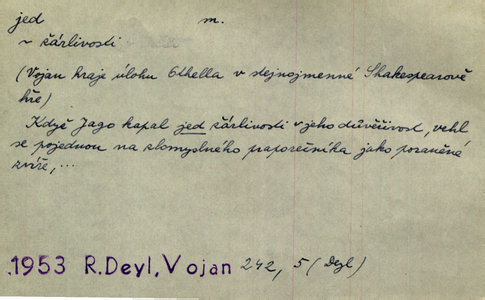 jed m.
~ žárlivosti
(Vojan hraje úlohu Othella v stejnojmenné Shakespearově
hře)
Když Jago kapal jed žárlivosti v jeho důvěřivost, vrhl
se pojednou na zlomyslného praporečníka jako poraněné
zvíře, ...
1953 R.Deyl, Vojan 242, 5 (Deyl)